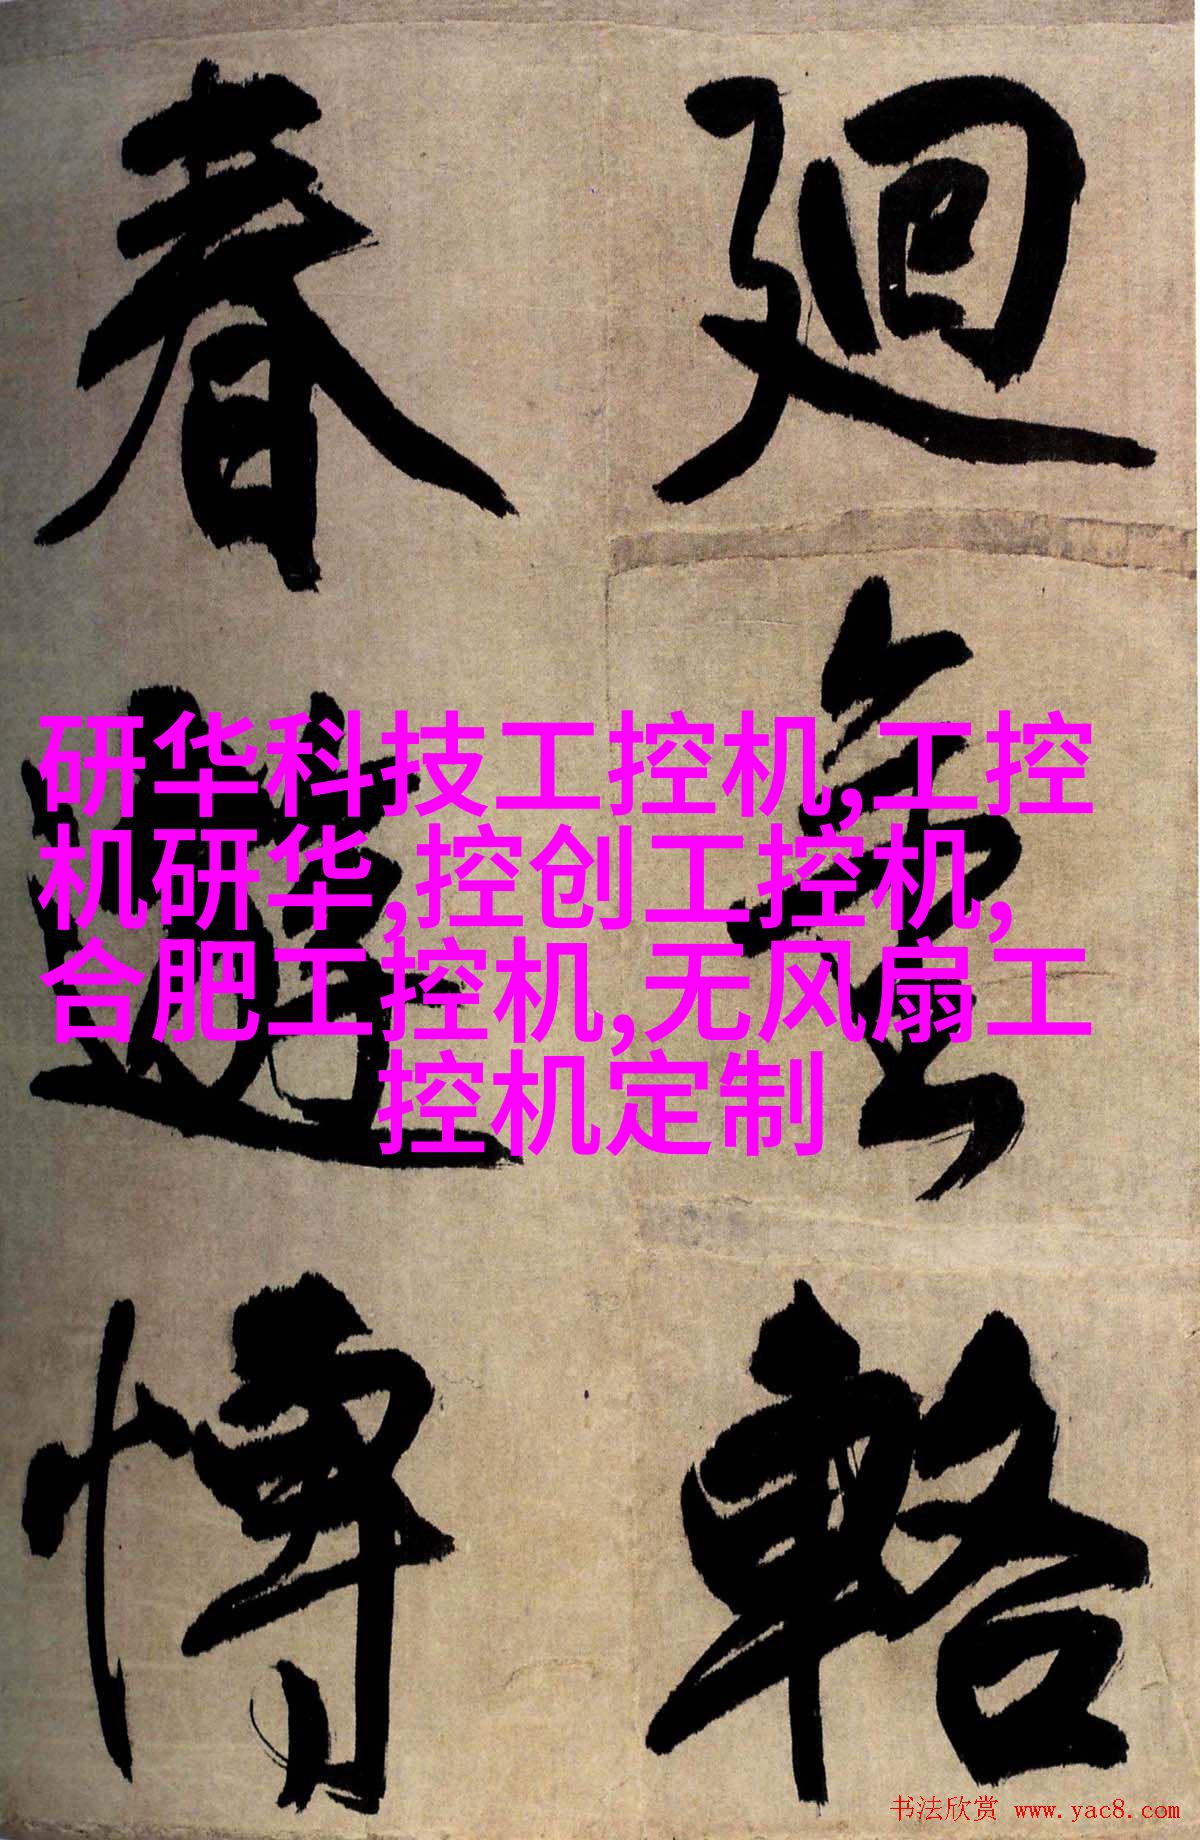 廻輅
春遊愽
研华科技工控机,工控
机研华,控创工控机,
合肥工控机,无风扇工
控机定制
书法欣赏 www.yac8.com